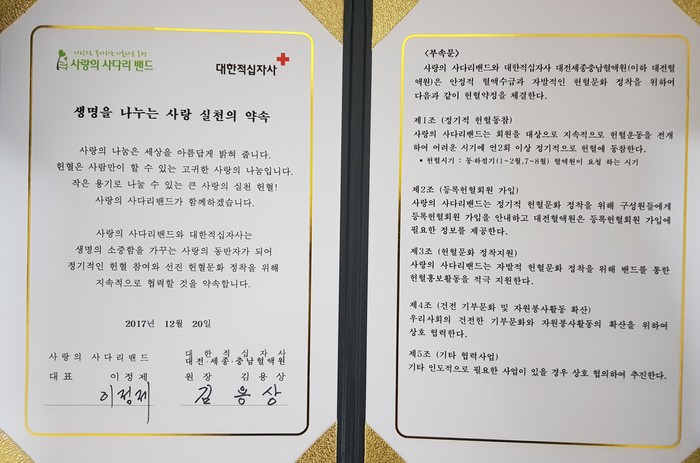 사랑의 사다리 밴드
대한적십자사
생명을 나누는 사랑 실천의 약속
사랑의 나눔은 세상을 아름답게 밝혀 줍니다.
헌혈은 사람만이 할 수 있는 고귀한 사랑의 나눔입니다.
작은 용기로 나눌 수 있는 큰 사랑의 실천 헌혈!
사랑의 사다리밴드가 함께하겠습니다.
사랑의 사다리밴드와 대한적십자사는
생명의 소중함을 가꾸는 사랑의 동반자가 되어
정기적인 헌혈 참여와 선진 헌혈문화 정착을 위해
지속적으로 협력할 것을 약속합니다.
2017년 12월 20일
사랑의 사다리밴드
대표 이정제
이정제
대한적십자사
대전·세종·충남혈액원
원장 김용상
김용상
<부속문>
사랑의 사다리밴드와 대한적십자사 대전세종충남혈액원(이하 대전혈
액원)은 안정적 혈액수급과 자발적인 헌혈문화 정착을 위하여
다음과 같이 헌혈약정을 체결한다.
제1조 (정기적 헌혈동참)
사랑의 사다리밴드는 회원을 대상으로 지속적으로 헌혈운동을 전개
하여 어려운 시기에 연2회 이상 정기적으로 헌혈에 동참한다.
* 헌혈시기 : 동·하절기(1~2월,7~8월) 혈액원이 요청 하는 시기
제2조 (등록헌혈회원 가입)
사랑의 사다리밴드는 정기적 헌혈문화 정착을 위해 구성원들에게
등록헌혈회원 가입을 안내하고 대전혈액원은 등록헌혈회원 가입에
필요한 정보를 제공한다.
제3조 (헌혈문화 정착지원)
사랑의 사다리밴드는 자발적 헌혈문화 정착을 위해 밴드를 통한
헌혈홍보활동을 적극 지원한다.
제4조 (건전 기부문화 및 자원봉사활동 확산)
우리사회의 건전한 기부문화와 자원봉사활동의 확산을 위하여
상호 협력한다.
제5조 (기타 협력사업)
기타 인도적으로 필요한 사업이 있을 경우 상호 협의하여 추진한다.